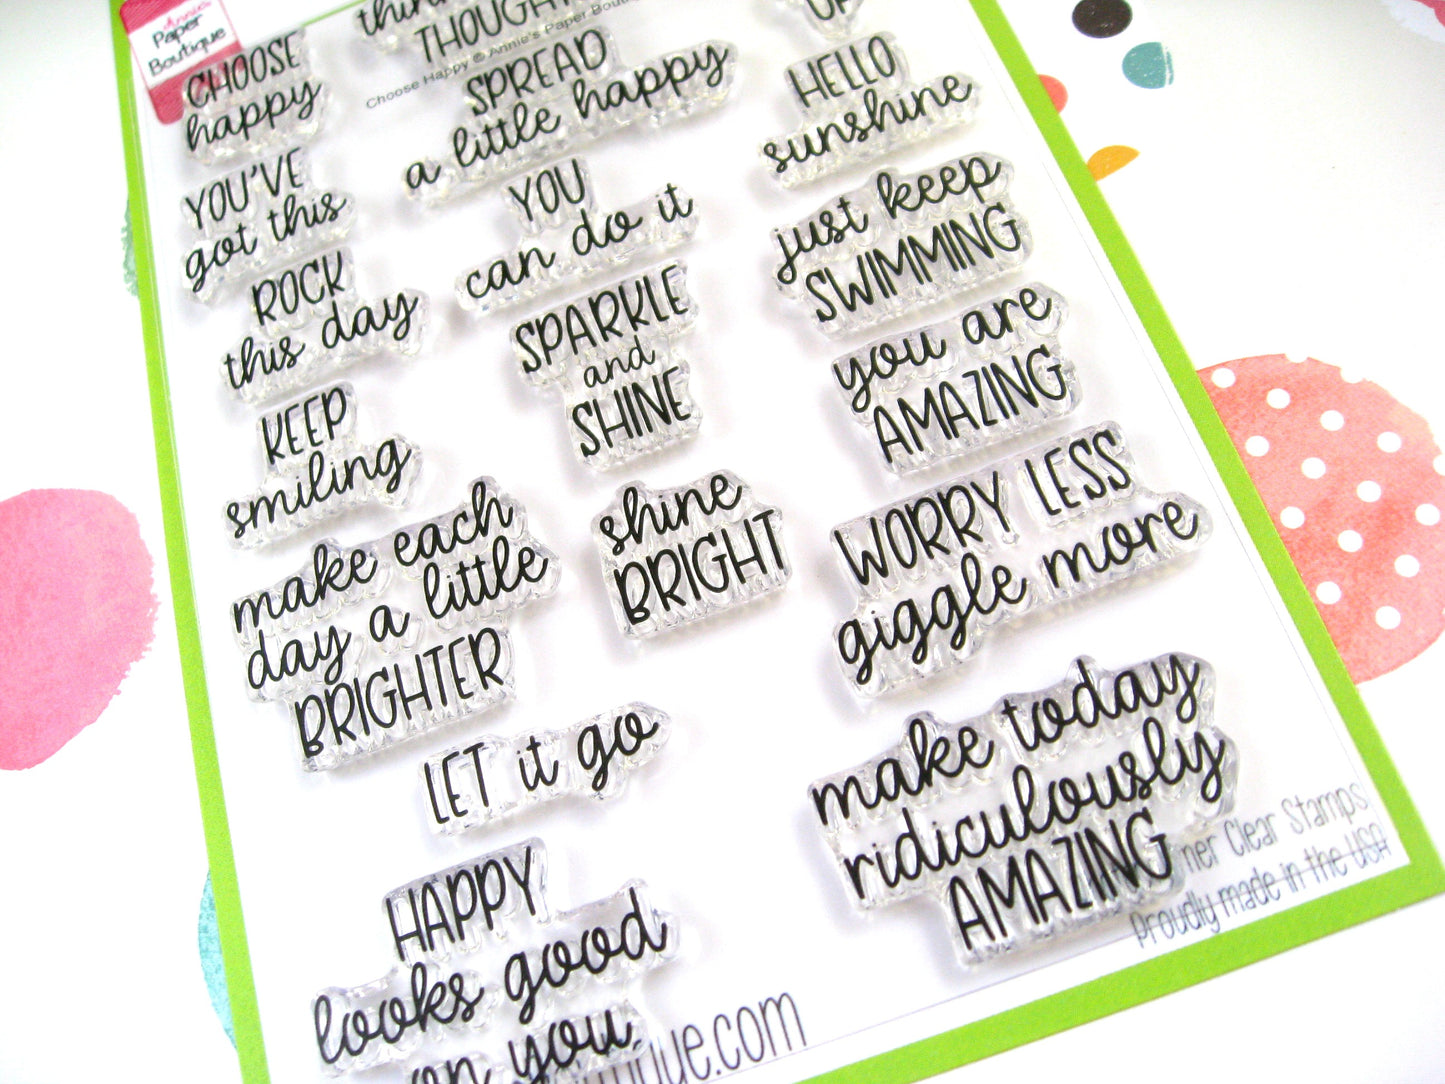 Annie's
Paper
Boutique
THOUGHT
UP
Choose Happy © Annie's Paper Boutique
CHOOSE
happy
SPREAD
a little happy
HELLO
sunshine
YOU'VE
got this
YOU
can do it
just keep
SWIMMING
ROCK
this day
SPARKLE
and
SHINE
you are
AMAZING
KEEP
smiling
shine
BRIGHT
WORRY LESS
giggle more
make each
day a little
BRIGHTER
LET it go
make today
ridiculously
AMAZING
HAPPY
looks good
on you.
Clear Stamps
Proudly made in the USA
que.com